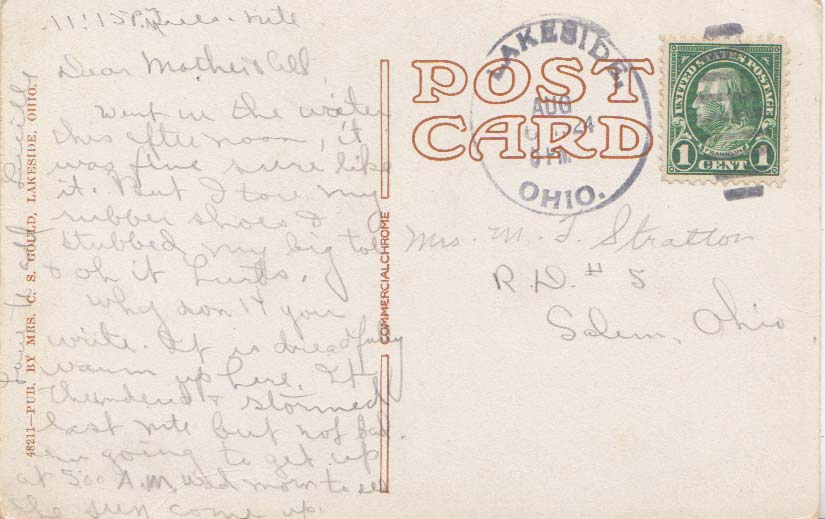 11:15 P.M. Tues. nite
Dear Mother & all,
Went in the water
this afternoon, it
was fine sure like
it. But I tore my
rubber shoes &
stubbed my big toe
& oh it hurts.
Why don't you
write. It is dreadfully
warm up here. It
thundered & stormed
last nite but not bad.
Im going to get up
at 5:00 A.M. wed morn to see
the sun come up.
Love to all Lucille
48211—PUB. BY MRS. C. S. GOULD, LAKESIDE, OHIO.
COMMERCIALCHROME
POST
CARD
LAKESIDE,
AUG
24
PM
OHIO.
UNITED STATES POSTAGE
FRANKLIN
1 CENT 1
Mrs. M. F. Stratton
R.D. # 5
Salem, Ohio